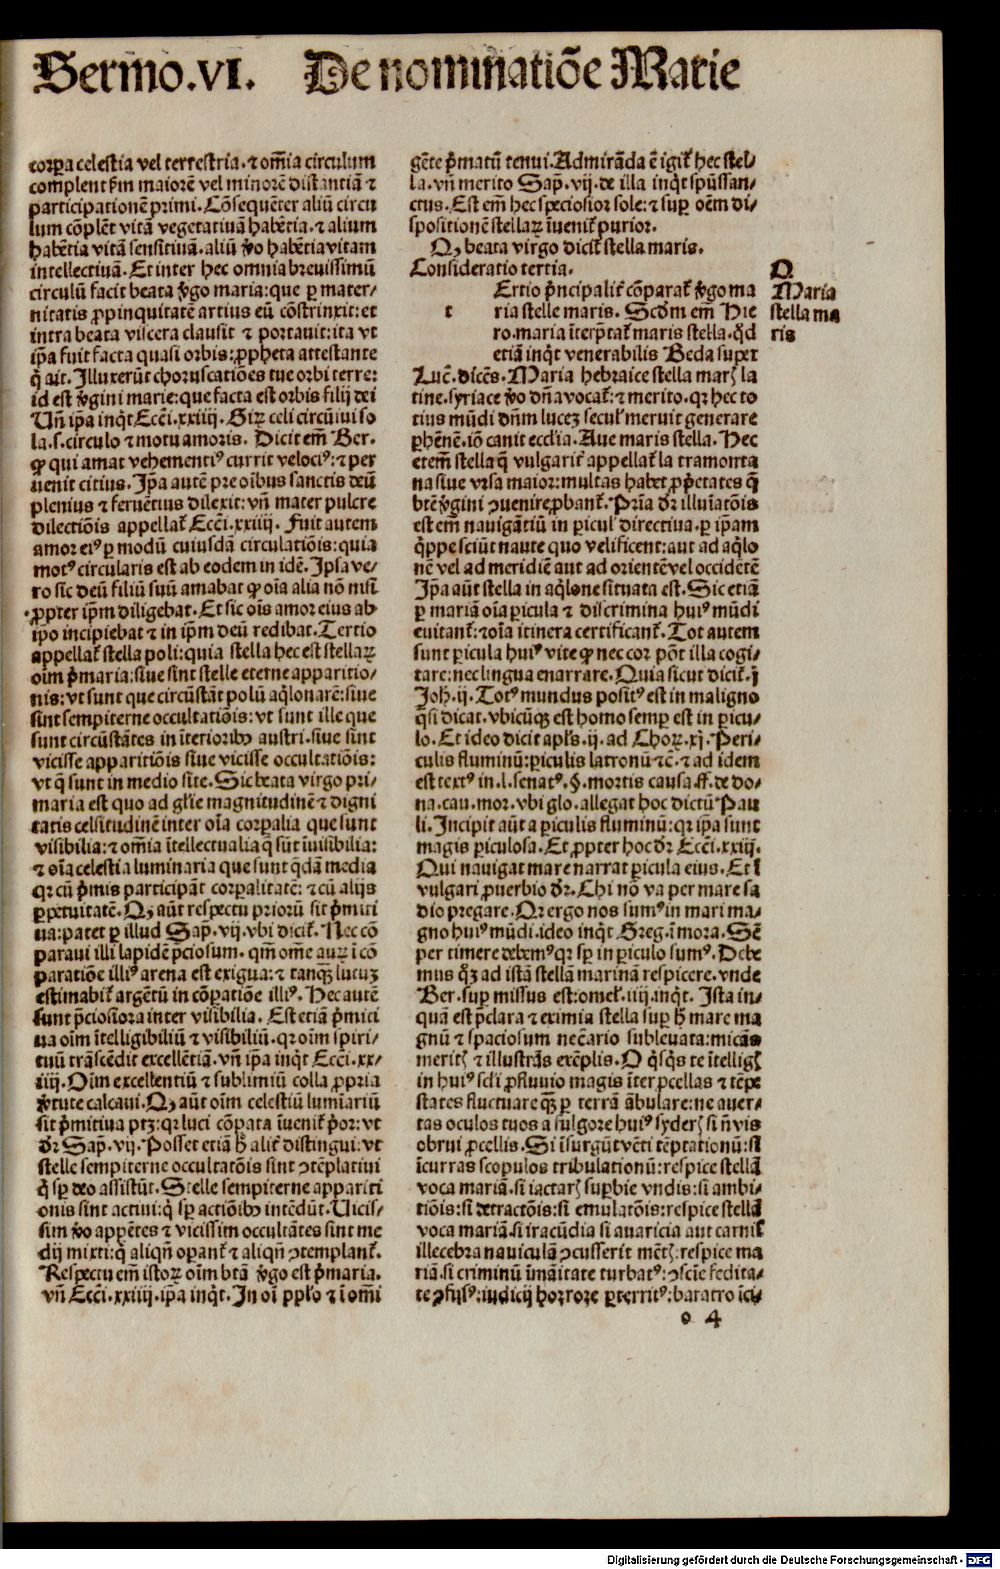 Sermo.VI. De nominatiõe Marie
corpa celestia vel terrestria. ⁊ om̃ia circulum
complent ẜm maiorẽ vel minorẽ distantiã ⁊
participationẽ primi. Cõsequẽter aliũ circu
lum cõplẽt vitã vegetatiuã habẽtia. ⁊ alium
habẽtia vitã sensitiuã. aliũ ꝟo habẽtia vitam
intellectiuã. Et inter hec omnia breuissimũ
circulũ facit beata ꝟgo maria: que ꝑ mater-
nitatis ꝓpinquitatẽ artius eũ cõstrinxit: et
intra beata viscera clausit ⁊ portauit: ita vt
ip̃a fuit facta quasi orbis: ꝓpheta attestante
q̃ ait. Illuxerũt choruscatiões tue orbi terre:
id est ꝟgini marie: que facta est orbis filij dei
Vñ ip̃a inq̇t Ecc̃i. xxiiij. Girꝫ celi circũiui so
la. s. circulo ⁊ motu amoris. Dicit em̃ Ber.
ꝙ qui amat vehementiꝰ currit velociꝰ: ⁊ per
uenit citius. Ip̃a autẽ pre oĩbus sanctis deũ
plenius ⁊ feruẽtius dilexit: vñ mater pulcre
dilectiõis appellať Ecc̃i. xxiiij. Fuit autem
amor eiꝰ ꝑ modũ cuiusdã circulatiõis: quia
motꝰ circularis est ab eodem in idẽ. Ipsa ve-
ro sic deũ filiũ suũ amabat ꝙ oĩa alia nõ nisi
ꝓpter ip̃m diligebat. Et sic oĩs amor eius ab
ip̃o incipiebat ⁊ in ip̃m deũ redibat. Tertio
appellať stella poli: quia stella hec est stellaꝝ
oĩm p̃maria: siue sint stelle eterne apparitio-
nis: vt sunt que circũstãt polũ aq̇lonarẽ: siue
sint sempiterne occultatiõis: vt sunt ille que
sunt circũstãtes in ĩterioribꝰ austri. siue sint
vicisse apparitiõis siue vicisse occultatiõis:
vt q̃ sunt in medio site. Sic beata virgo pri-
maria est quo ad gl̃ie magnitudinẽ ⁊ digni
tatis celsitudinẽ inter oĩa corꝑalia que sunt
visibilia: ⁊ om̃ia ĩtellectualia q̃ sũt ĩuisibilia:
⁊ oĩa celestia luminaria que sunt q̃dã media
qꝛ cũ p̃mis participãt corꝑalitatẽ: ⁊ cũ alijs
ꝑpetuitatẽ. Qꝫ aũt respectu priorũ sit p̃miti
ua: patet ꝑ illud Sap. vij. vbi diciť. Nec cõ
paraui illi lapidẽ p̃ciosum. qm̃ om̃e auꝝ ĩ cõ
paratiõe illiꝰ arena est exigua: ⁊ tanqꝫ lutuꝫ
estimabiť argẽtũ in cõpatiõe illiꝰ. Hec autẽ
sunt p̃ciosiora inter visibilia. Est etiã p̃miti
ua oĩm ĩtelligibiliũ ⁊ visibiliũ. qꝛ oĩm spiri-
tuũ trãscẽdit excellẽtiã. vñ ip̃a inq̇t Ecc̃i. xx-
iiij. Oĩm excellentiũ ⁊ sublimiũ colla ꝓpria
ꝟtute calcaui. Qꝫ aũt oĩm celestiũ lumĩariũ
sit p̃mitiua ptꝫ: qꝛ luci cõpata ĩuenit̃ p̃or: vt
dr̃ Sap. vij. Posset etiã h̃ aliť distingui: vt
stelle sempiterne occultatõis sint ꝯtẽplatiui
q̃ sꝑ deo assistũt. Stelle sempiterne appariti
onis sint actiui: q̃ sꝑ actiõibꝰ intẽdũt. Uicis-
sim ꝟo appẽtes ⁊ vicissim occultãtes sint me
dij mixti: q̃ aliqñ oꝑanť ⁊ aliqñ ꝯtemplanť.
Respectu em̃ istoꝝ oĩm btã ꝟgo est p̃maria.
vñ Ecc̃i. xxiiij. ip̃a inq̇t. In oĩ pp̃l̃o ⁊ ĩ om̃i
gẽte p̃matũ tenui. Admirãda ẽ igiť hec stel-
la. vñ merito Sap. vij. de illa inq̇t spũssan-
ctus. Est em̃ hec speciosior sole: ⁊ suꝑ oẽm di-
spositionẽ stellaꝝ ĩueniť purior.
Qꝫ beata virgo diciť stella maris.
Consideratio tertia.
Ertio p̃ncipaliť cõparať ꝟgo ma
t ria stelle maris. Scd̃m em̃ Hie
ro. maria ĩterp̃tať maris stella. q̃d
etiã inq̇t venerabilis Beda super
Luc̃. dicẽs. Maria hebraice stella marꝭ la
tine. syriace ꝟo dñã vocať: ⁊ merito. qꝛ hec to
tius mũdi dñm lucez secul̃ meruit generare
ꝑhẽnẽ. iõ canit eccl̃ia. Aue maris stella. Hec
etem̃ stella q̃ vulgariť appellať la tramonta
na siue vrsa maior: multas habet ꝓp̃etates q̃
btẽ ꝟgini ꝯuenire ꝓbanť. Pr̃ia dr̃ illuĩatõis
est em̃ nauigãtiũ in picul̃ directiua. ꝑ ip̃am
q̃ppe sciũt naute quo velificent: aut ad aq̇lo
nẽ vel ad meridiẽ aut ad orientẽ vel occidẽtẽ
Ip̃a aũt stella in aq̇lone situata est. Sic etiã
ꝑ mariã oĩa picula ⁊ discrimina huiꝰ mũdi
euitanť: ⁊ oĩa itinera certificanť. Tot autem
sunt picula huiꝰ vite ꝙ nec cor põt illa cogi-
tare: nec lingua enarrare. Quia sicut diciť. j
Joh. ij. Totꝰ mundus positꝰ est in maligno
q̃si dicat. vbicũqꝫ est homo semꝑ est in picu-
lo. Et ideo dicit apl̃s. ij. ad Choꝝ. xj. Peri-
culis fluminũ: ꝑiculis latronũ ⁊c̃. ⁊ ad idem
est textꝰ in. l. senatꝰ. §. mortis causa. ff. de do-
na. cau. mor. vbi glo. allegat hoc dictũ Pau
li. Incipit aũt a piculis fluminũ: qꝛ ip̃a sunt
magis ꝑiculosa. Et ꝓpter hoc dr̃ Ecc̃i. xxiij.
Qui nauigat mare narrat picula eius. Et ĩ
vulgari ꝓuerbio dr̃. Chi nõ va per mare sa
dio pregare. Qꝛ ergo nos sumꝰ in mari ma-
gno huiꝰ mũdi. ideo inq̇t Greg. ĩ mora. Sẽ
per timere debemꝰ qꝛ sꝑ in ꝑiculo sumꝰ. Debe
mus q̃ꝫ ad istã stellã marinã respicere. vnde
Ber. suꝑ missus est: omel̃. iiij. inq̇t. Ista in-
quã est p̃clara ⁊ eximia stella suꝑ h̃ mare ma
gnũ ⁊ spaciosum nec̃ario subleuata: micãs
meritꝭ ⁊ illustrãs exẽplis. O q̃sq̃s te ĩtelligꝭ
in huiꝰ scl̃i ꝓfluuio magis ĩter ꝓcellas ⁊ tẽpe
states fluctuare qꝫ ꝑ terrã ãbulare: ne auer-
tas oculos tuos a fulgore huiꝰ syderꝭ si ñ vis
obrui ꝓcellis. Si ĩsurgũt vẽti tẽptationũ: si
ĩcurras scopulos tribulationũ: respice stellã
voca mariã. si iactarꝭ suꝑbie vndis: si ambi-
tiõis: si detractõis: si emulatõis: respice stellã
voca mariã. si iracũdia si auaricia aut carnis̃
illecebra nauiculã ꝯcusserit mẽtꝭ: respice ma
riã. si criminũ ĩmãitate turbatꝰ: ꝯsciẽ fedita-
te ꝯfusꝰ: iudicij horrore ꝑterritꝰ: baratro ĩci-
O
Maria
stella ma
ris
o 4
Digitalisierung gefördert durch die Deutsche Forschungsgemeinschaft - DFG